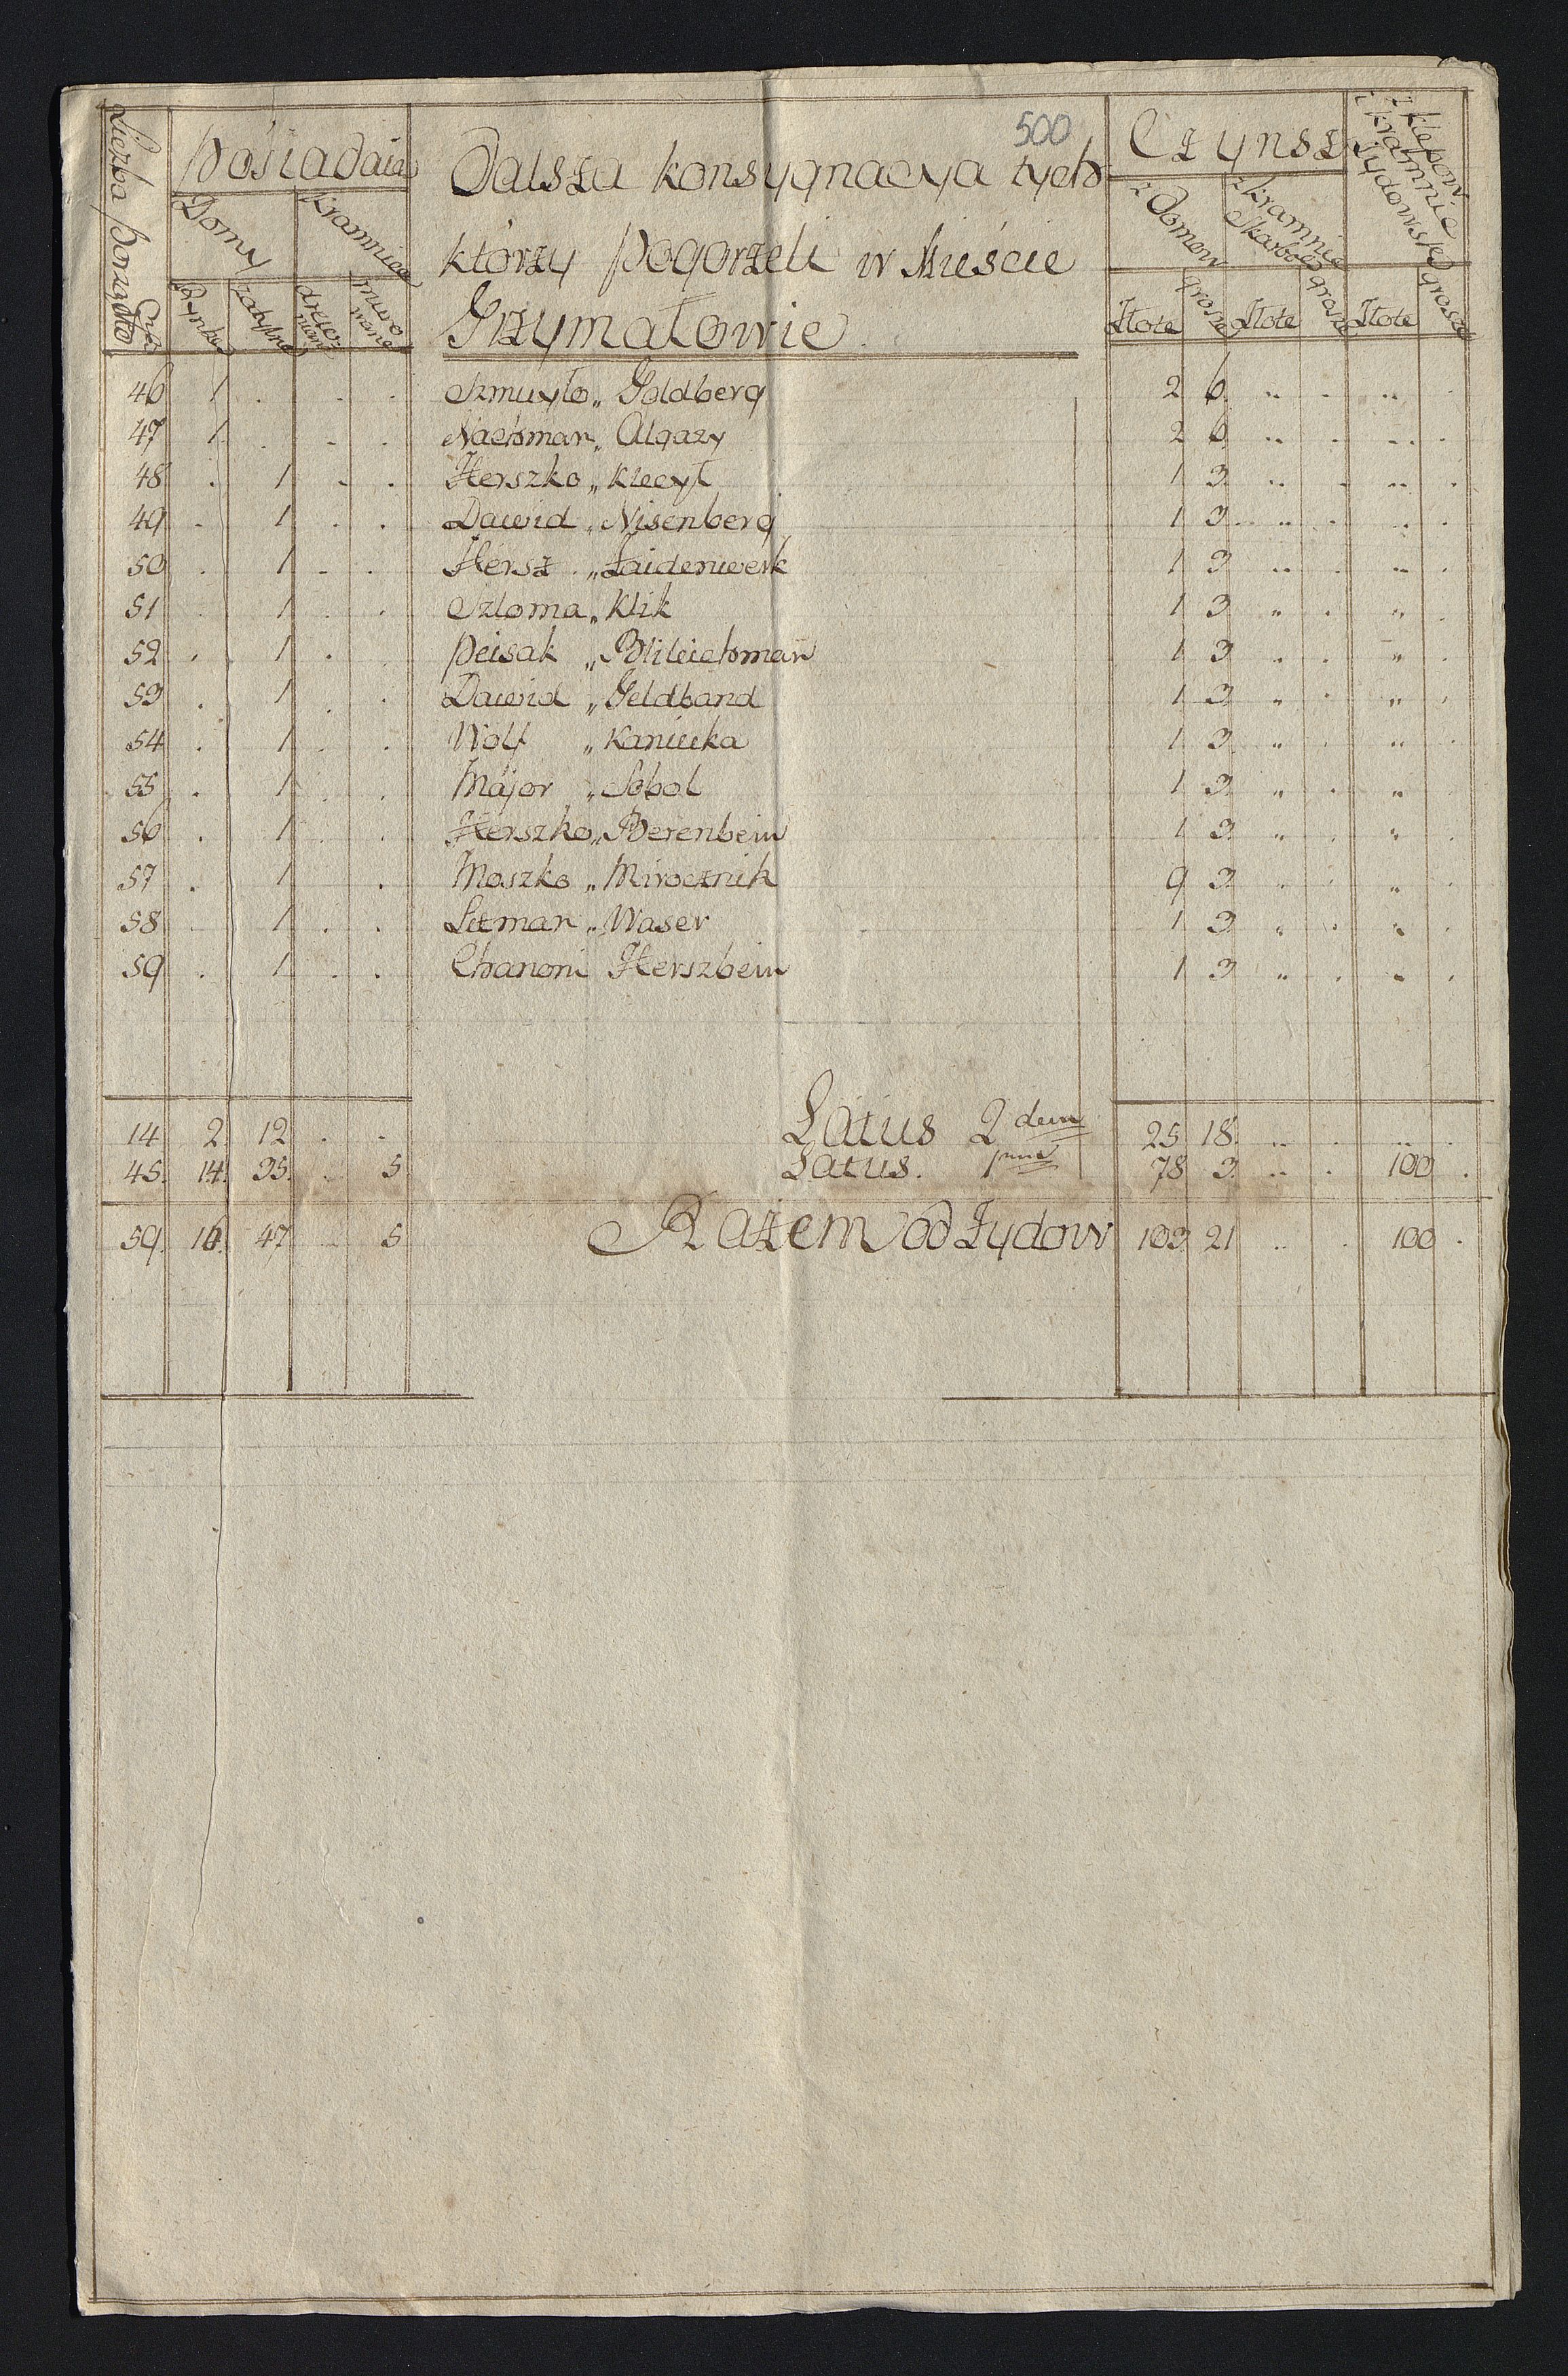 500
Liczba Porządkowa
Posiadaią
Dalsza konsygnacya tych
którzy pogorzeli w Mieście
Grzymałowie.
Czynsz
Domy Kramnice
z Domow z kramnic
Rynkowe zatylne drewniane murowane
Złote grosze Złote grosze Złote grosze
46 1 . . . Szmuyło „ Goldberg 2 6 .. . .. .
47 1 . . . Nachman „ Algazy 2 6 .. . .. .
48 . 1 . . Herszko „ Klecył 1 3 .. . .. .
49 . 1 . . Dawid „ Nisenberg 1 3 .. . .. .
50 . 1 . . Hersz „ Zaidenwerk 1 3 .. . .. .
51 . 1 . . Szloma „ Klik 1 3 „ . „ .
52 . 1 . . Peisak „ 1 3 . . „ .
53 . 1 . . Dawid „ Geldband 1 3 „ . „ .
54 . 1 . . Wolf „ Kaniuka 1 3 „ . „ .
55 . 1 . . Major „ Sobol 1 3 „ . „ .
56 . 1 . . Herszko „ Berenbein 1 3 „ . „ .
57 . 1 . Moszko „ Mirocznik 9 3 „ . „ .
58 . 1 . . „ Waser 1 3 „ . „ .
59 . 1 . . Chanoni Herszbein 1 3 „ . „ .
14 2 12 . . Latus 2dum 25 18 .. . .. .
45. 14. 35. . 5 Latus. 1mum 78 3. .. . 100 .
59. 16. 47 . 5 Razem od Żydow 103 21 .. . 100 .